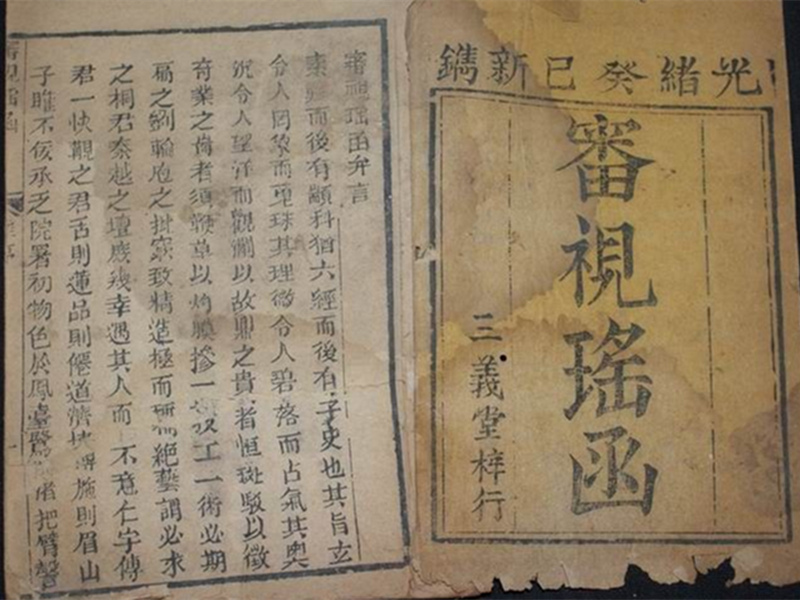 光緒癸巳新鐫
審視瑤函
三義堂梓行
審視瑤函弁言
素而後有顓科猶六經而後有子史也其旨玄
令人罔象而覓珠其理微令人碧落而占氣其奧
沉令人望洋而觀瀾以故鼎之貴者恒斑駁以徵
奇業之侮者須鞭草以灼膜摻一工一術必期
扁之劉輪庖之批窾致精造極而絕藝謂必求
之桐君秦越之壇庶幾幸遇其人而不意仁宇傅
君一快覩之君舌則蓮品則僊道濟施則眉山
子不佞承乏院署初物色於鳳臺者把臂